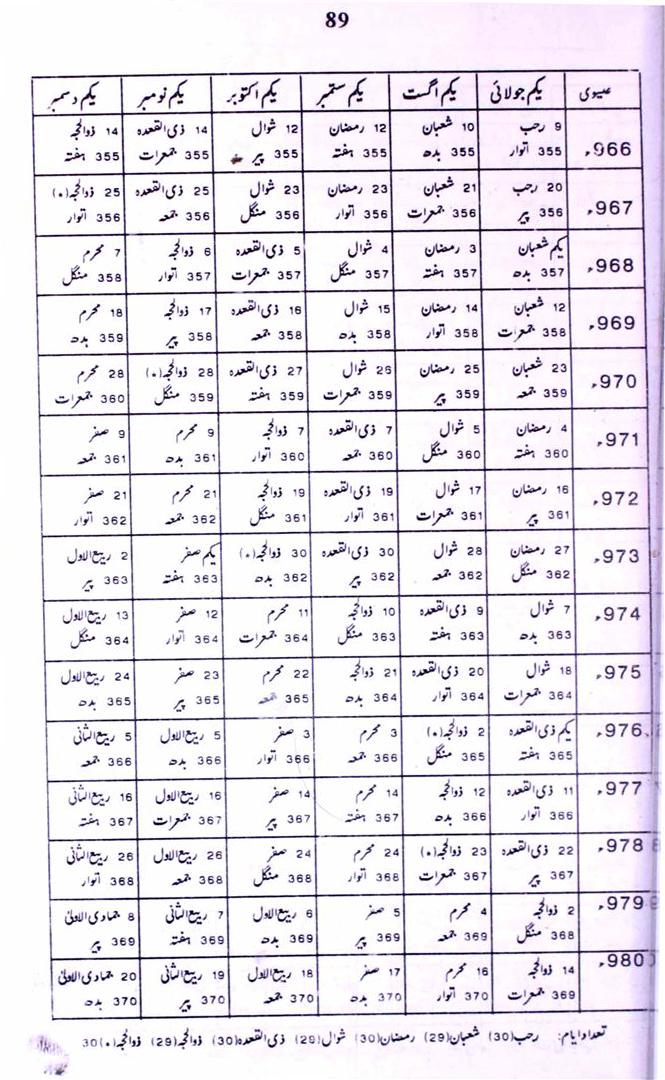 89
عیسوی یکم جولائی یکم اگست یکم ستمبر یکم اکتوبر یکم نومبر یکم دسمبر
966ء 9 رجب 10 شعبان 12 رمضان 12 شوال 14 ذی القعدہ 14 ذوالحجہ
355 اتوار 355 بدھ 355 ہفتہ 355 پیر 355 جمعرات 355 ہفتہ
967ء 20 رجب 21 شعبان 23 رمضان 23 شوال 25 ذی القعدہ 25 ذوالحجہ(٭)
356 پیر 356 جمعرات 356 اتوار 356 منگل 356 جمعہ 356 اتوار
968ء یکم شعبان 3 رمضان 4 شوال 5 ذی القعدہ 6 ذوالحجہ 7 محرم
357 بدھ 357 ہفتہ 357 منگل 357 جمعرات 357 اتوار 358 منگل
969ء 12 شعبان 14 رمضان 15 شوال 16 ذی القعدہ 17 ذوالحجہ 18 محرم
358 جمعرات 358 اتوار 358 بدھ 358 جمعہ 358 پیر 359 بدھ
970ء 23 شعبان 25 رمضان 26 شوال 27 ذی القعدہ 28 ذوالحجہ(٭) 28 محرم
359 جمعہ 359 پیر 359 جمعرات 359 ہفتہ 359 منگل 360 جمعرات
971ء 4 رمضان 5 شوال 7 ذی القعدہ 7 ذوالحجہ 9 محرم 9 صفر
360 ہفتہ 360 منگل 360 جمعہ 360 اتوار 361 بدھ 361 جمعہ
972ء 16 رمضان 17 شوال 19 ذی القعدہ 19 ذوالحجہ 21 محرم 21 صفر
361 پیر 361 جمعرات 361 اتوار 361 منگل 362 جمعہ 362 اتوار
973ء 27 رمضان 28 شوال 30 ذی القعدہ 30 ذوالحجہ(٭) یکم صفر 2 ربیع الاول
362 منگل 362 جمعہ 362 پیر 362 بدھ 363 ہفتہ 363 پیر
974ء 7 شوال 9 ذی القعدہ 10 ذوالحجہ 11 محرم 12 صفر 13 ربیع الاول
363 بدھ 363 ہفتہ 363 منگل 364 جمعرات 364 اتوار 364 منگل
975ء 18 شوال 20 ذی القعدہ 21 ذوالحجہ 22 محرم 23 صفر 24 ربیع الاول
364 جمعرات 364 اتوار 364 بدھ 365 جمعہ 365 پیر 365 بدھ
976ء یکم ذی القعدہ 2 ذوالحجہ(٭) 3 محرم 3 صفر 5 ربیع الاول 5 ربیع الثانی
365 ہفتہ 365 منگل 366 جمعہ 366 اتوار 366 بدھ 366 جمعہ
977ء 11 ذی القعدہ 12 ذوالحجہ 14 محرم 14 صفر 16 ربیع الاول 16 ربیع الثانی
366 اتوار 366 بدھ 367 ہفتہ 367 پیر 367 جمعرات 367 ہفتہ
978ء 22 ذی القعدہ 23 ذوالحجہ(٭) 24 محرم 24 صفر 26 ربیع الاول 26 ربیع الثانی
367 پیر 367 جمعرات 368 اتوار 368 منگل 368 جمعہ 368 اتوار
979ء 2 ذوالحجہ 4 محرم 5 صفر 6 ربیع الاول 7 ربیع الثانی 8 جمادی الاولیٰ
368 منگل 369 جمعہ 369 پیر 369 بدھ 369 ہفتہ 369 پیر
980ء 14 ذوالحجہ 16 محرم 17 صفر 18 ربیع الاول 19 ربیع الثانی 20 جمادی الاولیٰ
369 جمعرات 370 اتوار 370 بدھ 370 جمعہ 370 پیر 370 بدھ
تعداد ایام: رجب(30) شعبان(29) رمضان(30) شوال(29) ذی القعدہ(30) ذوالحجہ(29) ذوالحجہ(٭)30